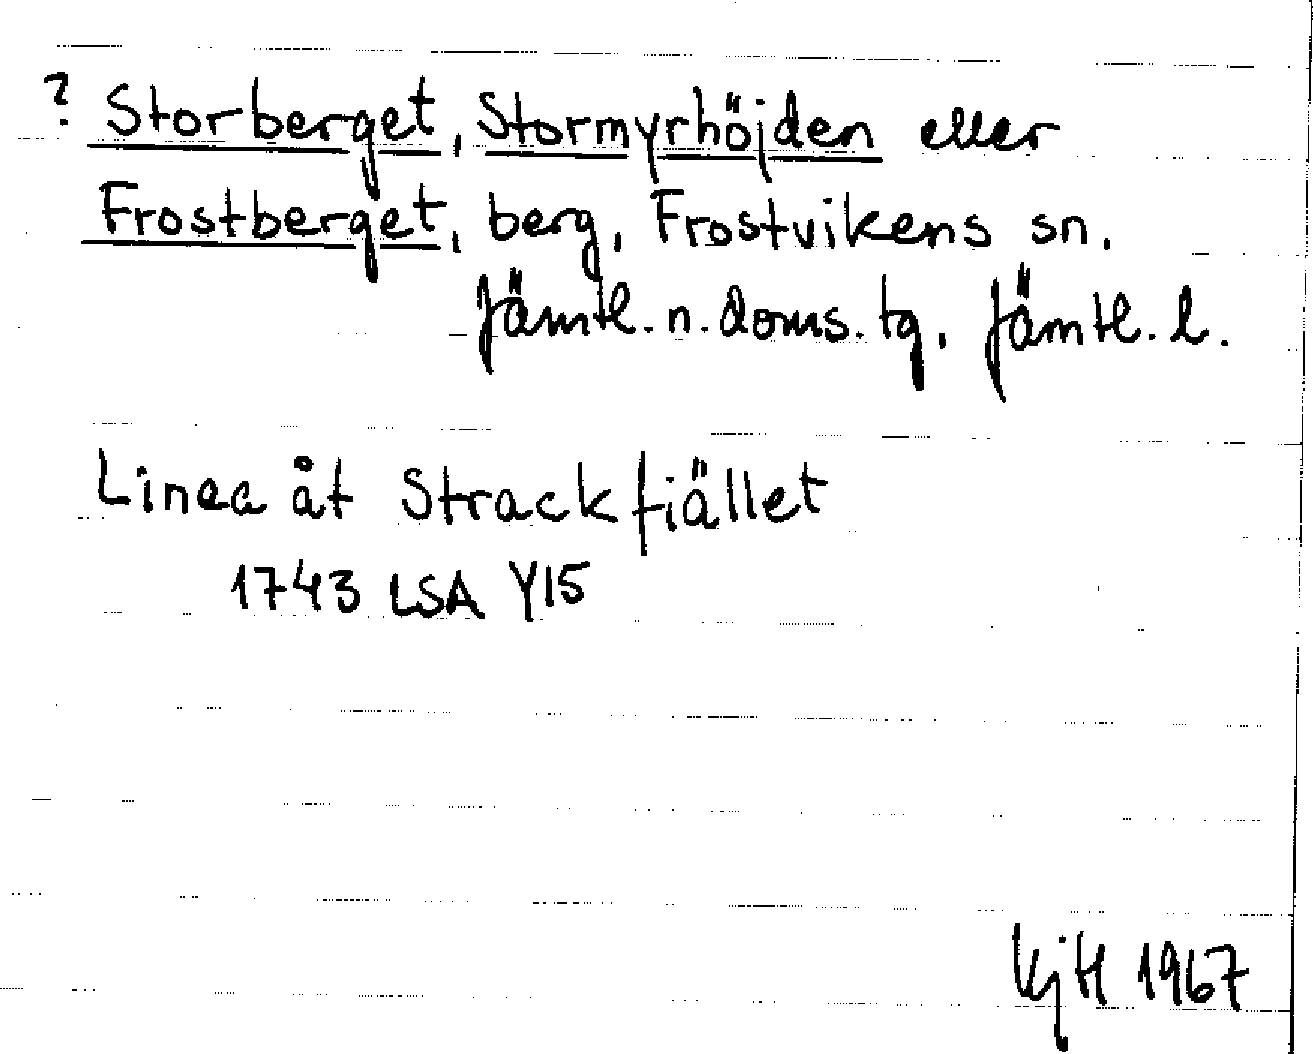 ? Storberget, Stormyrhöjden eller
Frostberget, berg, Frostvikens sn.
Jämtl. n. doms. tg, Jämtl. l.
Linea åt Strackfiället
1743 LSA Y15
KjH 1967